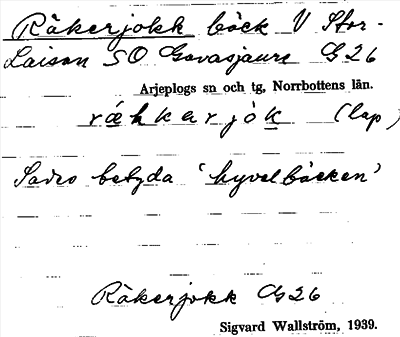 Räkerjokk bäck V Stor-
Laisan SO Gavasjaure G 26
Arjeplogs sn och tg, Norrbottens län.
ræhkarjòk (lap)
Säges betyda 'hyvelbäcken'
Räkerjokk G 26
Sigvard Wallström, 1939.